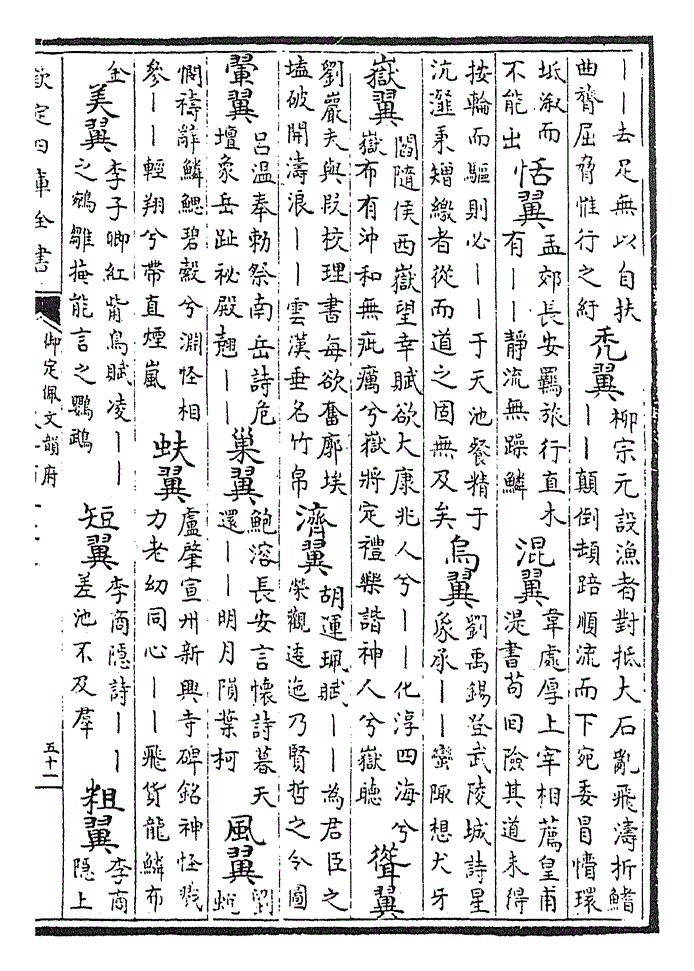 ——去足無以自扶
曲脊屈脅惟行之紆
秃翼
柳宗元設漁者對抵大石亂飛濤折鰭
——顛倒頓踣順流而下宛委冒懵環
坻溆而
不能出
恬翼
孟郊長安羈旅行直木
有——靜流無躁鱗
混翼
韋處厚上宰相薦皇甫
湜書苟囘險其道未得
按輪而驅則必——于天池餐精于
沆瀣秉矰繳者從而道之固無及矣
烏翼
劉禹錫登武陵城詩星
象承——蠻陬想犬牙
嶽翼
閻隨侯西嶽望幸賦欲大康兆人兮——化淳四海兮
嶽布有沖和無疵癘兮嶽將定禮樂諧神人兮嶽聽
聳翼
劉巖夫與段校理書每欲奮廓埃
壒破開濤浪——雲漢垂名竹帛
濟翼
胡運珮賦——為君臣之
榮觀逺迩乃賢哲之令圖
翬翼
吕温奉勅祭南岳詩危
壇象岳趾祕殿翹——
巢翼
鮑溶長安言懷詩暮天
還——明月隕葉柯
風翼
劉
蛻
憫禱辭鱗鰓碧縠兮淵怪相
參——輕翔兮帶直煙嵐
蚨翼
盧肇宣州新興寺碑銘神怪戮
力老幼同心——飛貨龍鱗布
金
美翼
李子卿紅觜烏賦凌——
之鵷雛掩能言之鸚鵡
短翼
李商隱詩——
差池不及羣
粗翼
李商
隱上
欽定四庫全書
御定佩文韻府
五十一